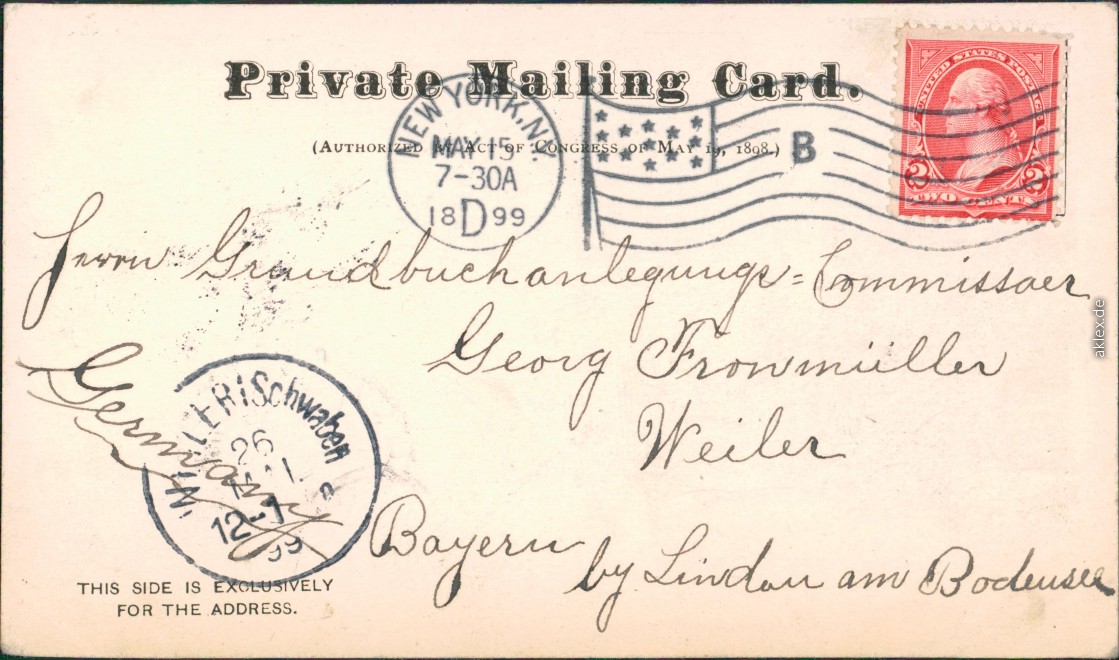 Private Mailing Card.
(Authorized by Act of Congress of May 19, 1898.)
NEW YORK, N.Y.
MAY 15
7-30A
18 D 99
B
UNITED STATES POSTAGE
2 2
TWO CENTS
Herrn Grundbuchanlegungs=Commissaer
Georg Frowmüller
Weiler
Germany
WEILER i/Schwaben
26
MAI
12-1
99
Bayern
by Lindau am Bodensee
THIS SIDE IS EXCLUSIVELY
FOR THE ADDRESS.
aklex.de